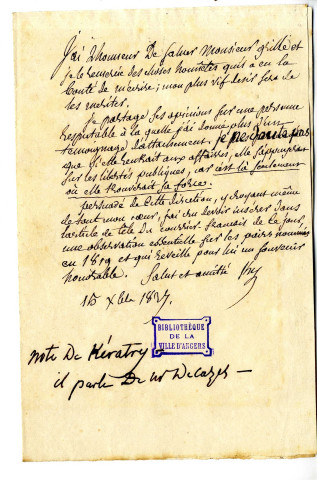 J'ai l'honneur De saluer Monsieur Grille et
je le remercie des choses honnêtes qu'il a eu la
bonté de m'écrire; mon plus vif désir sera de
les mériter.
je partage ses opinions sur une personne
respectable à la quelle j'ai donné plus d'un
témoignage d'attachement. je ne doute pas
que si elle rentrait aux affaires, elle s'appuyerait
sur les libertés publiques, car c'est là seulement
où elle trouverait sa force.
persuadé de cette direction, y croyant même
de tout mon cœur, j'ai cru devoir insérer dans
l'article de tête du courrier français de ce jour,
une observation essentielle sur les pairs nommés
en 1819 et qui réveille pour lui un souvenir
honorable. Salut et amitié
15 Xbre 1827.
BIBLIOTHÈQUE
DE LA
VILLE D'ANGERS
note De Kératry
il parle De Mr Decazes —